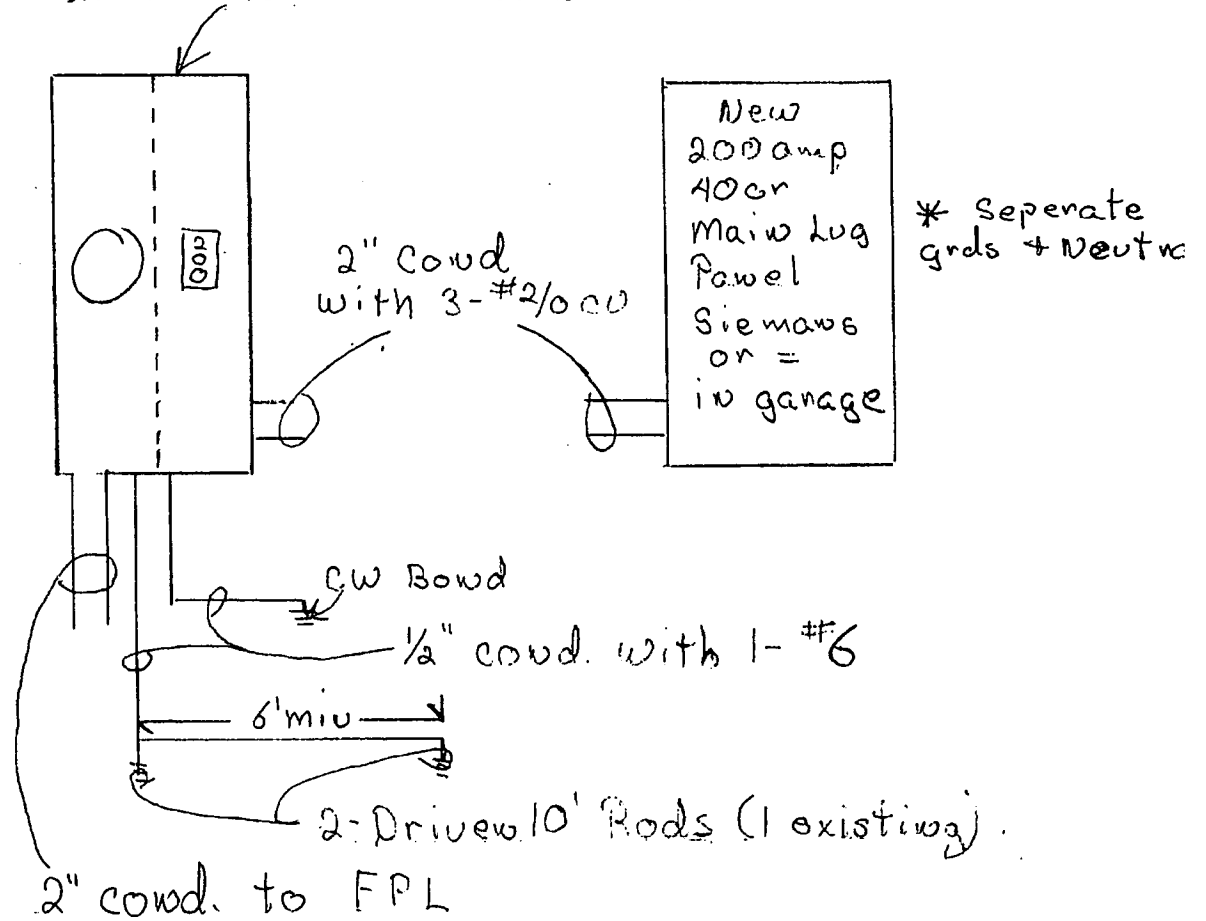 200
2" Cond
with 3-#2/0 cu
New
200 amp
40 cr
Main Lug
Panel
Siemans
or =
in garage
* Seperate
grds + Neutra
CW Bond
1/2" cond. with 1-#6
6' min
2-Driven 10' Rods (1 existing).
2" cond. to FPL